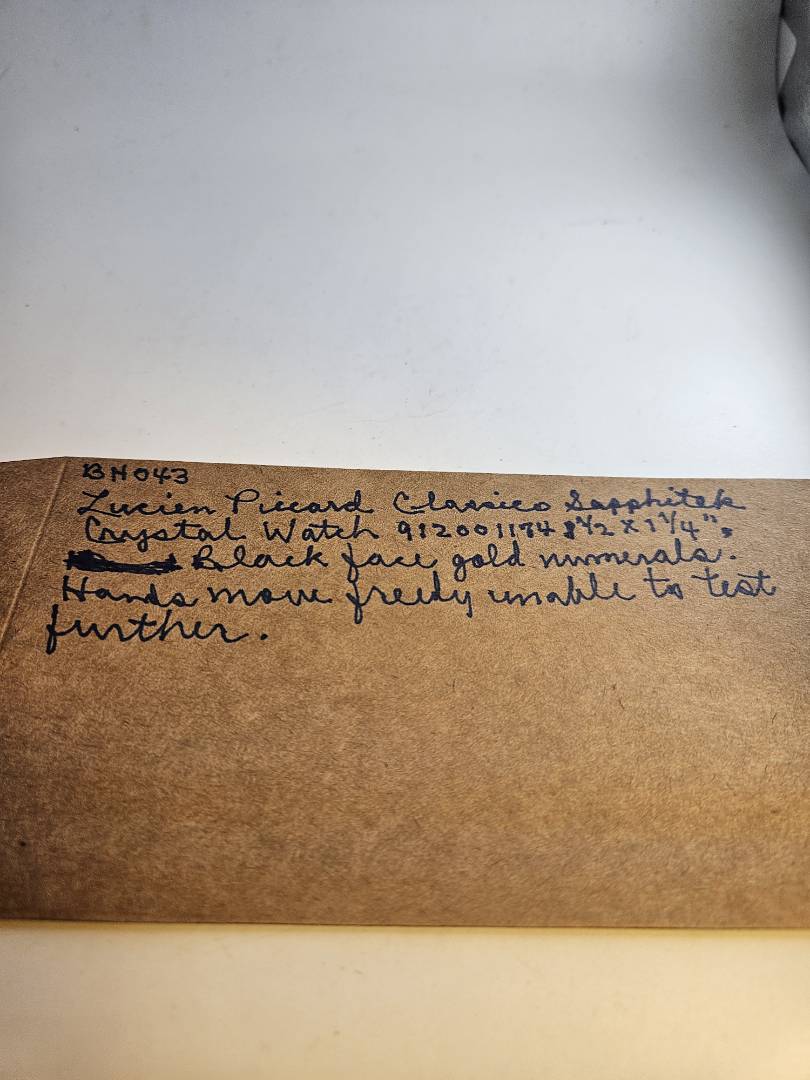 BN043
Lucien Piccard Classico Sapphitek
Crystal Watch 912001174 8 1/2 x 1 1/4",
Black face gold numerals.
Hands move freely unable to test
further.